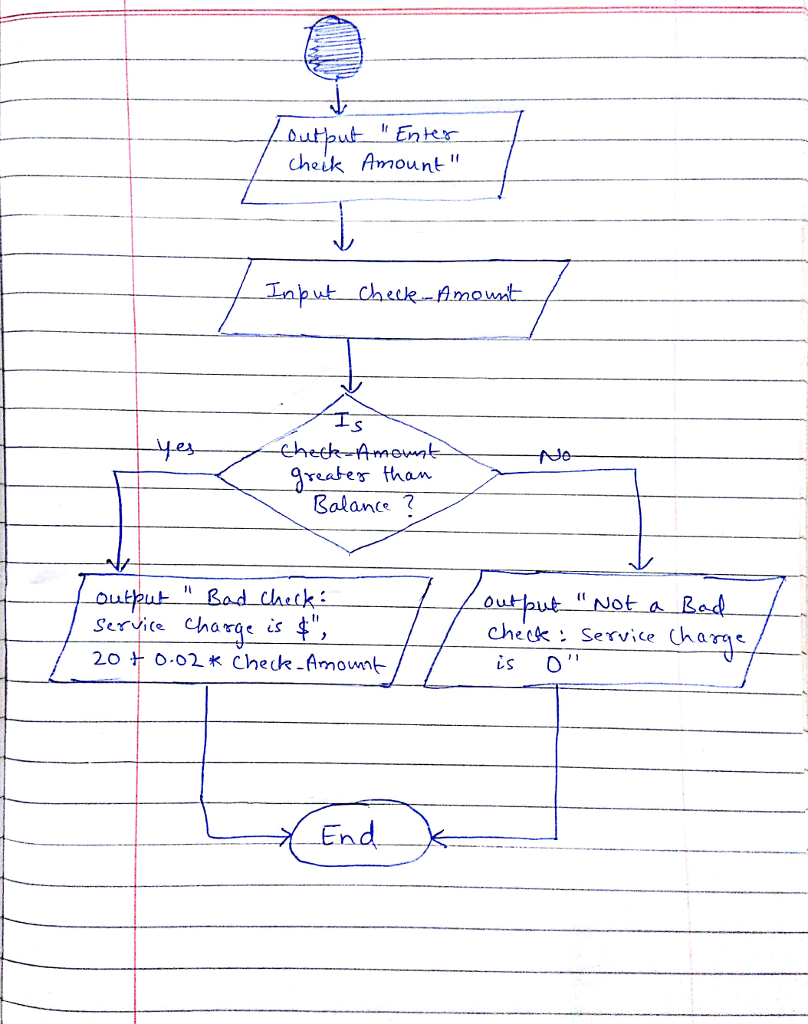 output "Enter
Check Amount"
Input Check_Amount
Is
Check_Amount
greater than
Balance ?
Yes
No
output " Bad Check:
Service Charge is $",
20 + 0.02 * Check_Amount
output "Not a Bad
Check : Service Charge
is 0"
End